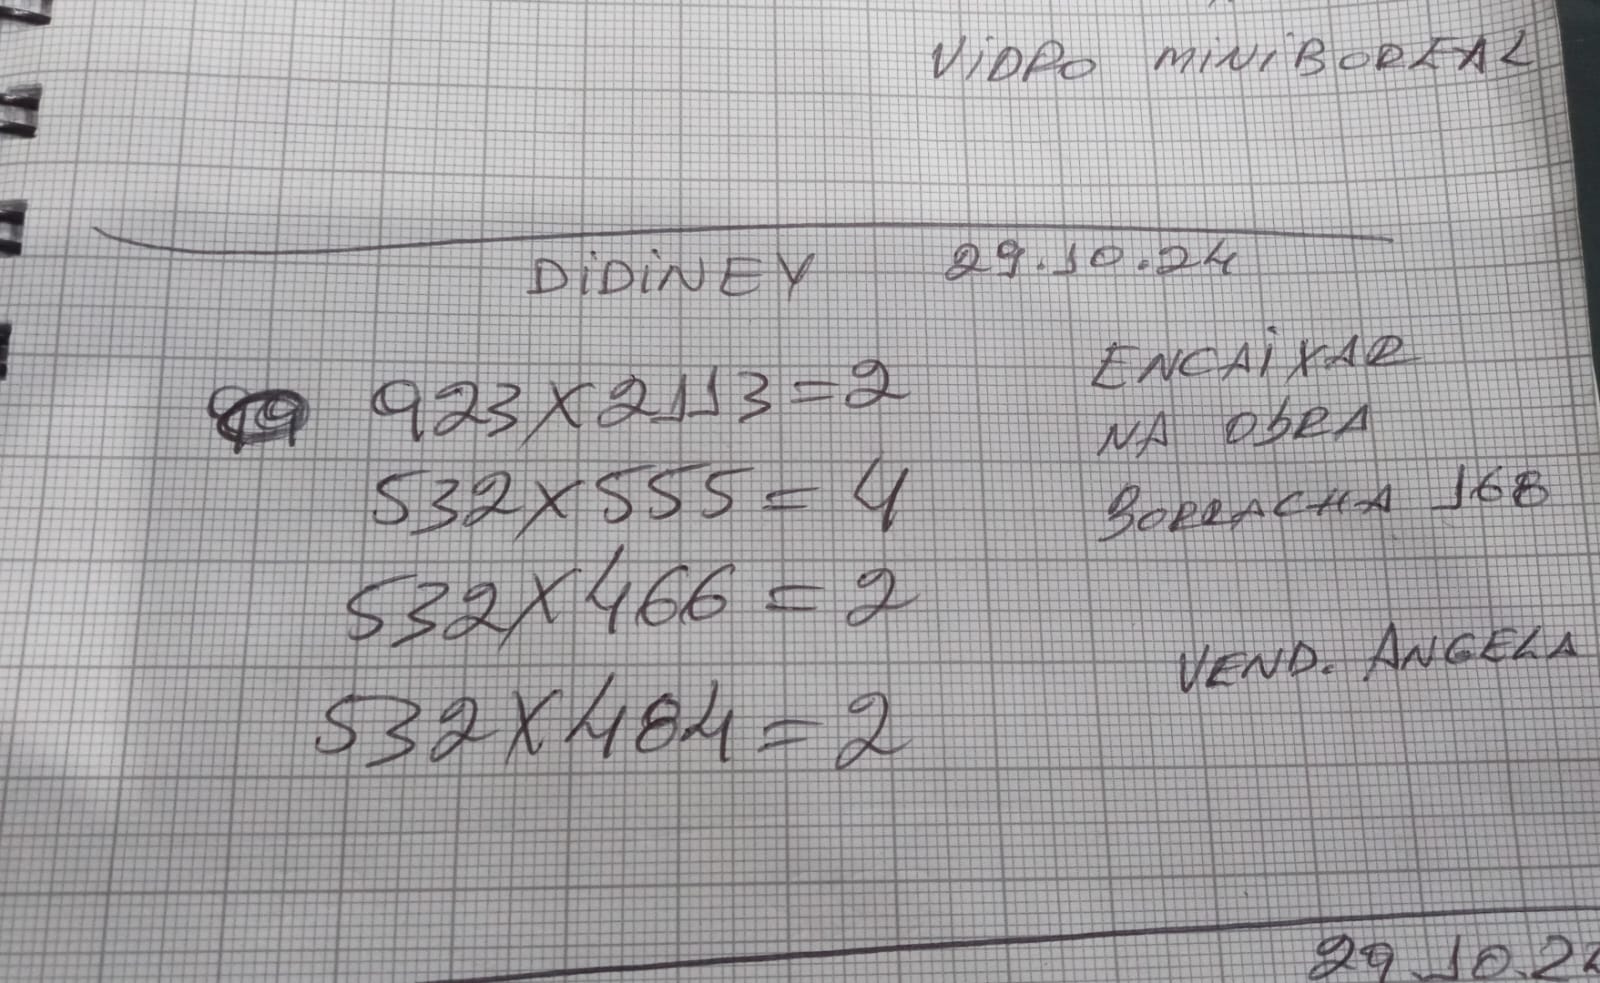 VIDRO MINIBOREAL
DIDINEY 29.10.24
923X2113=2
ENCAIXAR
NA OBRA
532X555=4
BORRACHA 168
532X466=2
VEND. ANGELA
532X484=2
29.10.2